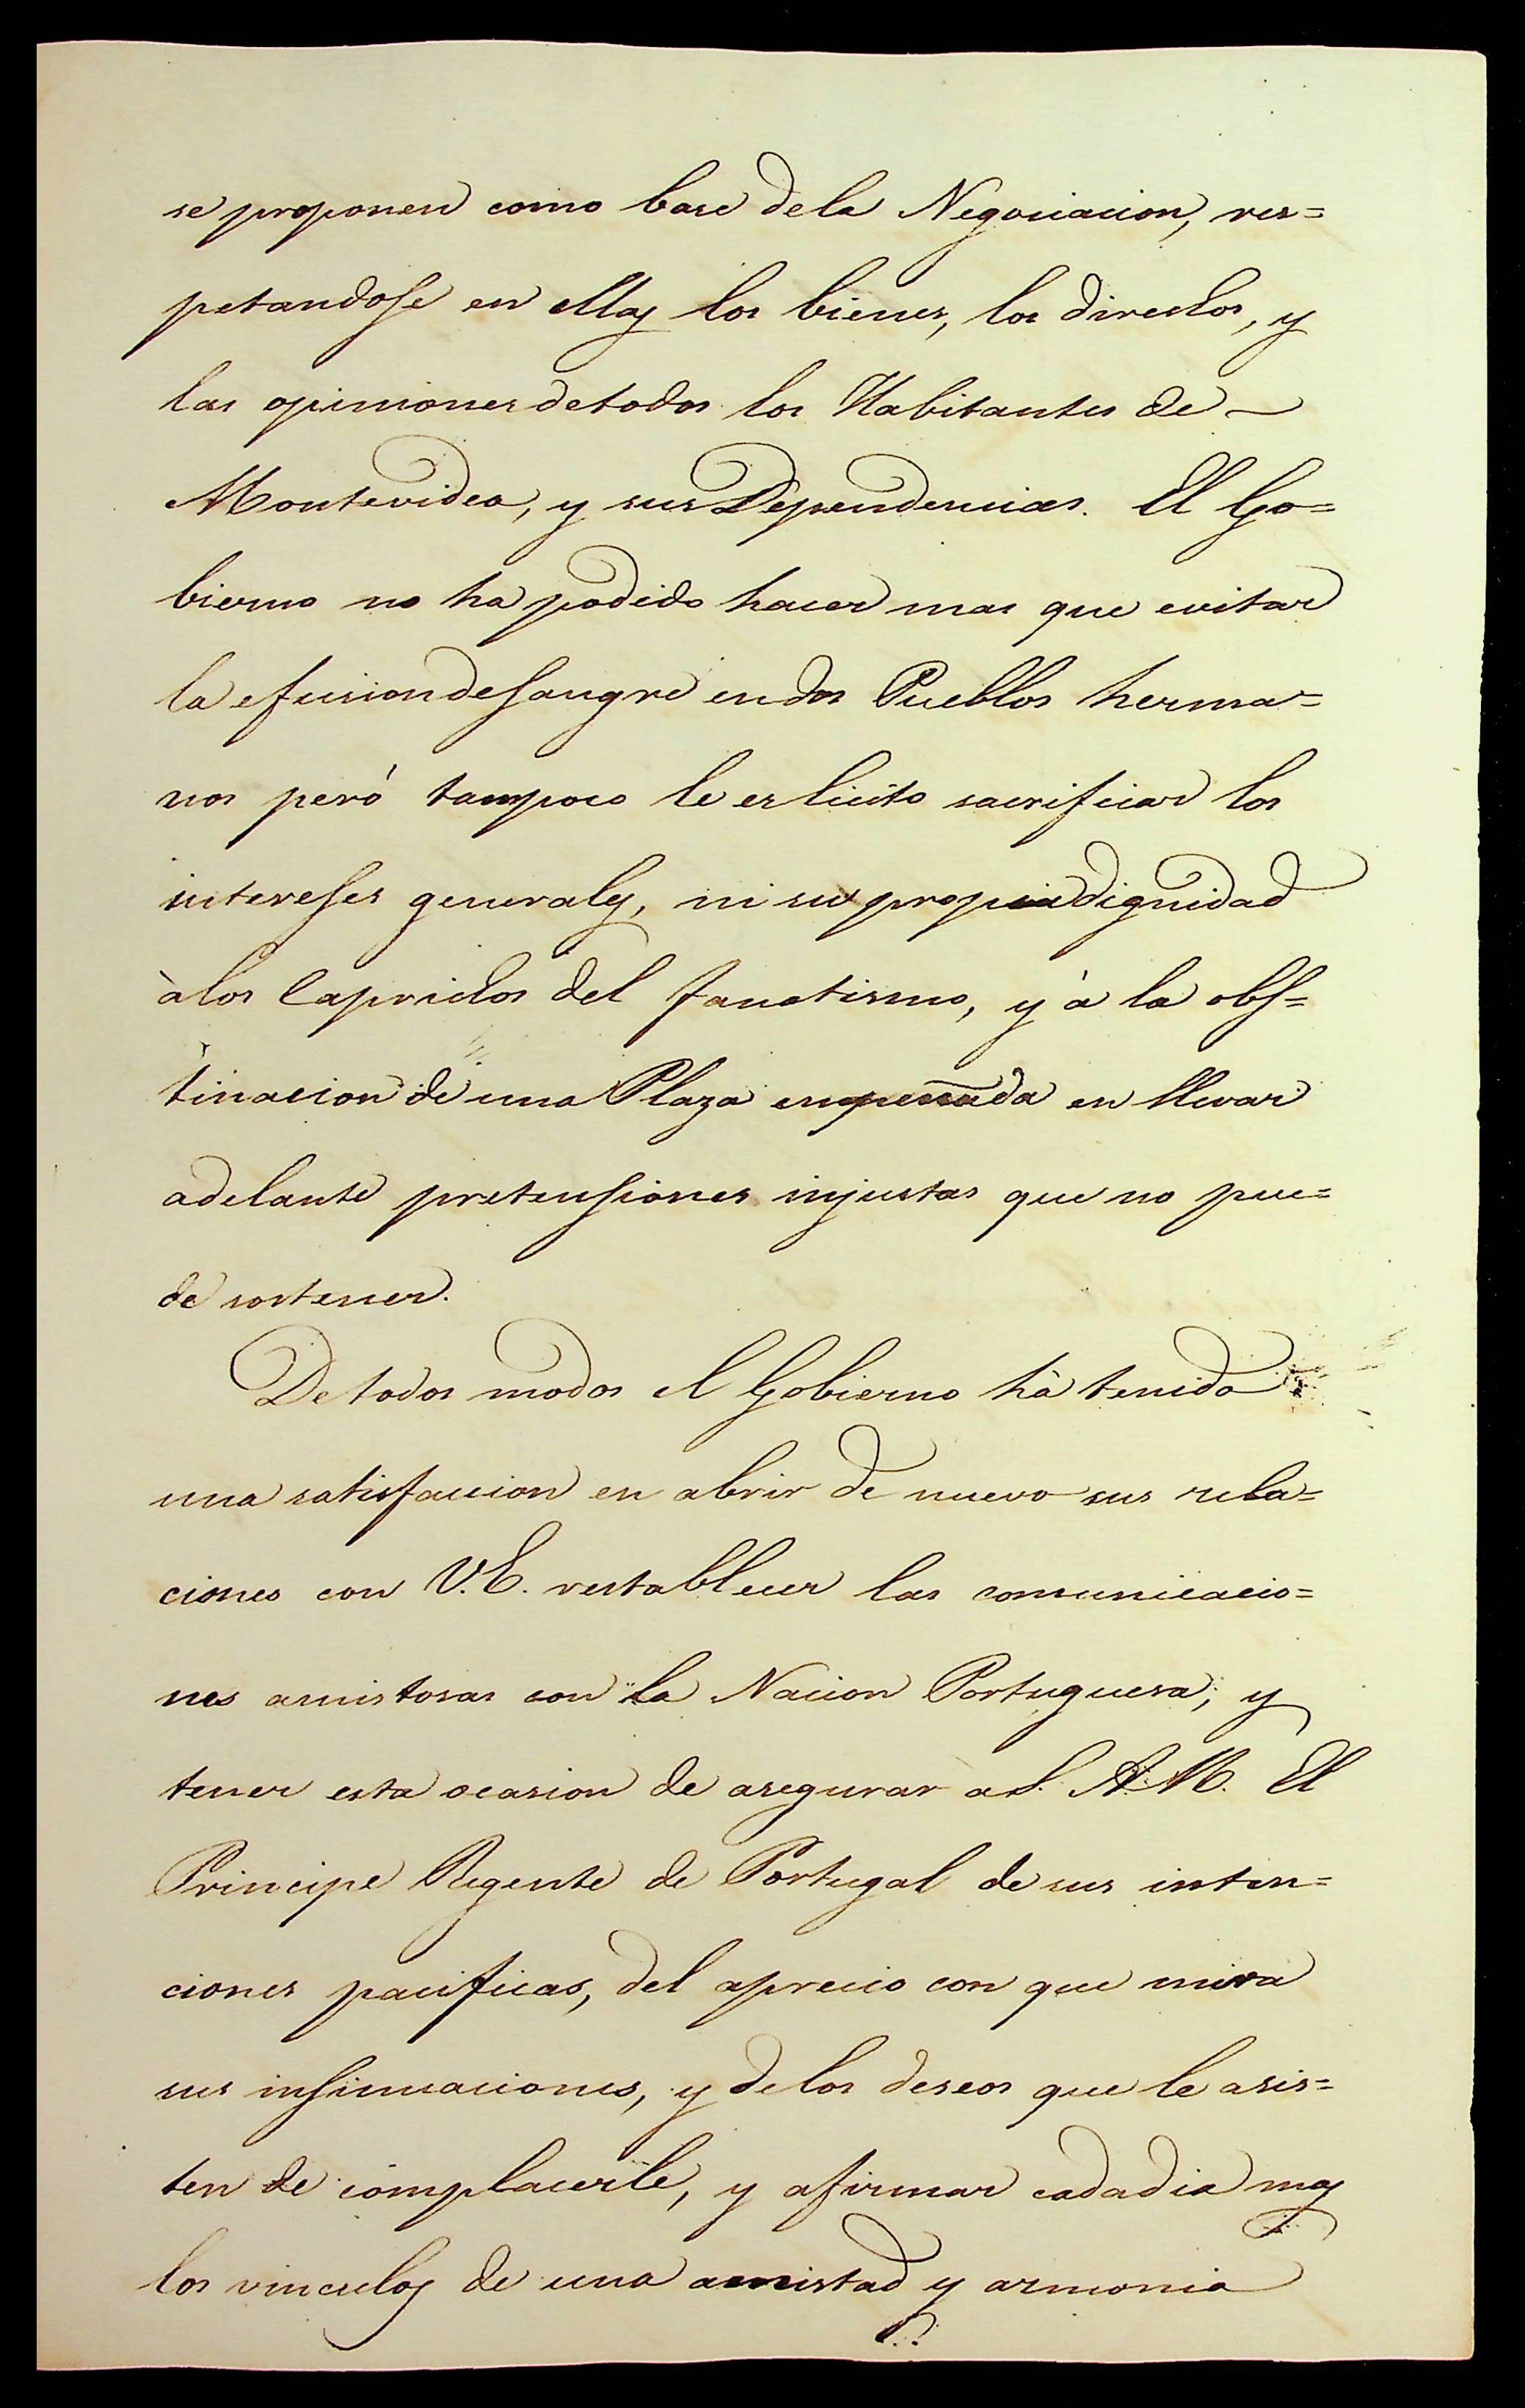 se proponen como base dela Negociacion, res=
petandose en ellas los bienes, los direchos, y
las opiniones detodos los Habitantes de
Montevideo, y sus Dependencias. El Go=
bierno no ha podido hacer mas que evitar
la efusion desangre en dos Pueblos herma=
nos peró tampoco le es licito sacrificar los
intereses generales, ni su propia dignidad
àlos Caprichos del fanatismo, y à la obs=
tinacion de una Plaza empeñada en llevar
adelante pretensiones injustas que no pue=
de sostener.
De todos modos el Gobierno hà tenido
una satisfaccion en abrir de nuevo sus rela=
ciones con V.E. restablecer las comunicacio=
nes amistosas con la Nacion Portuguesa, y
tener esta ocasion de asegurar a S. A. R. El
Principe Regente de Portugal de sus inten=
ciones pacificas, del aprecio con que mira
sus insinuaciones, y delos deseos que le asis=
ten de complacerle, y afirmar cadadia mas
los vinculos de una amistad y armonia